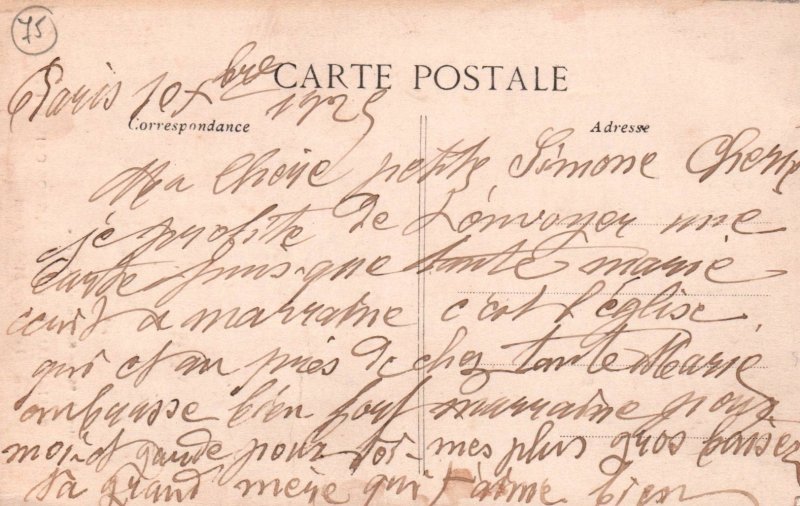 75
CARTE POSTALE
Paris 10 Xbre 1925
Correspondance
Adresse
Ma Chere petite Simone Cheri
je profite de t'envoyer une
carte puis-que tante marie
ecrit a marraine c'est l'église
qui et au près de chez tante Marie
embrasse bien fort marraine pour
moi et garde pour toi mes plus gros baiser
ta grand mere qui t'aime bien